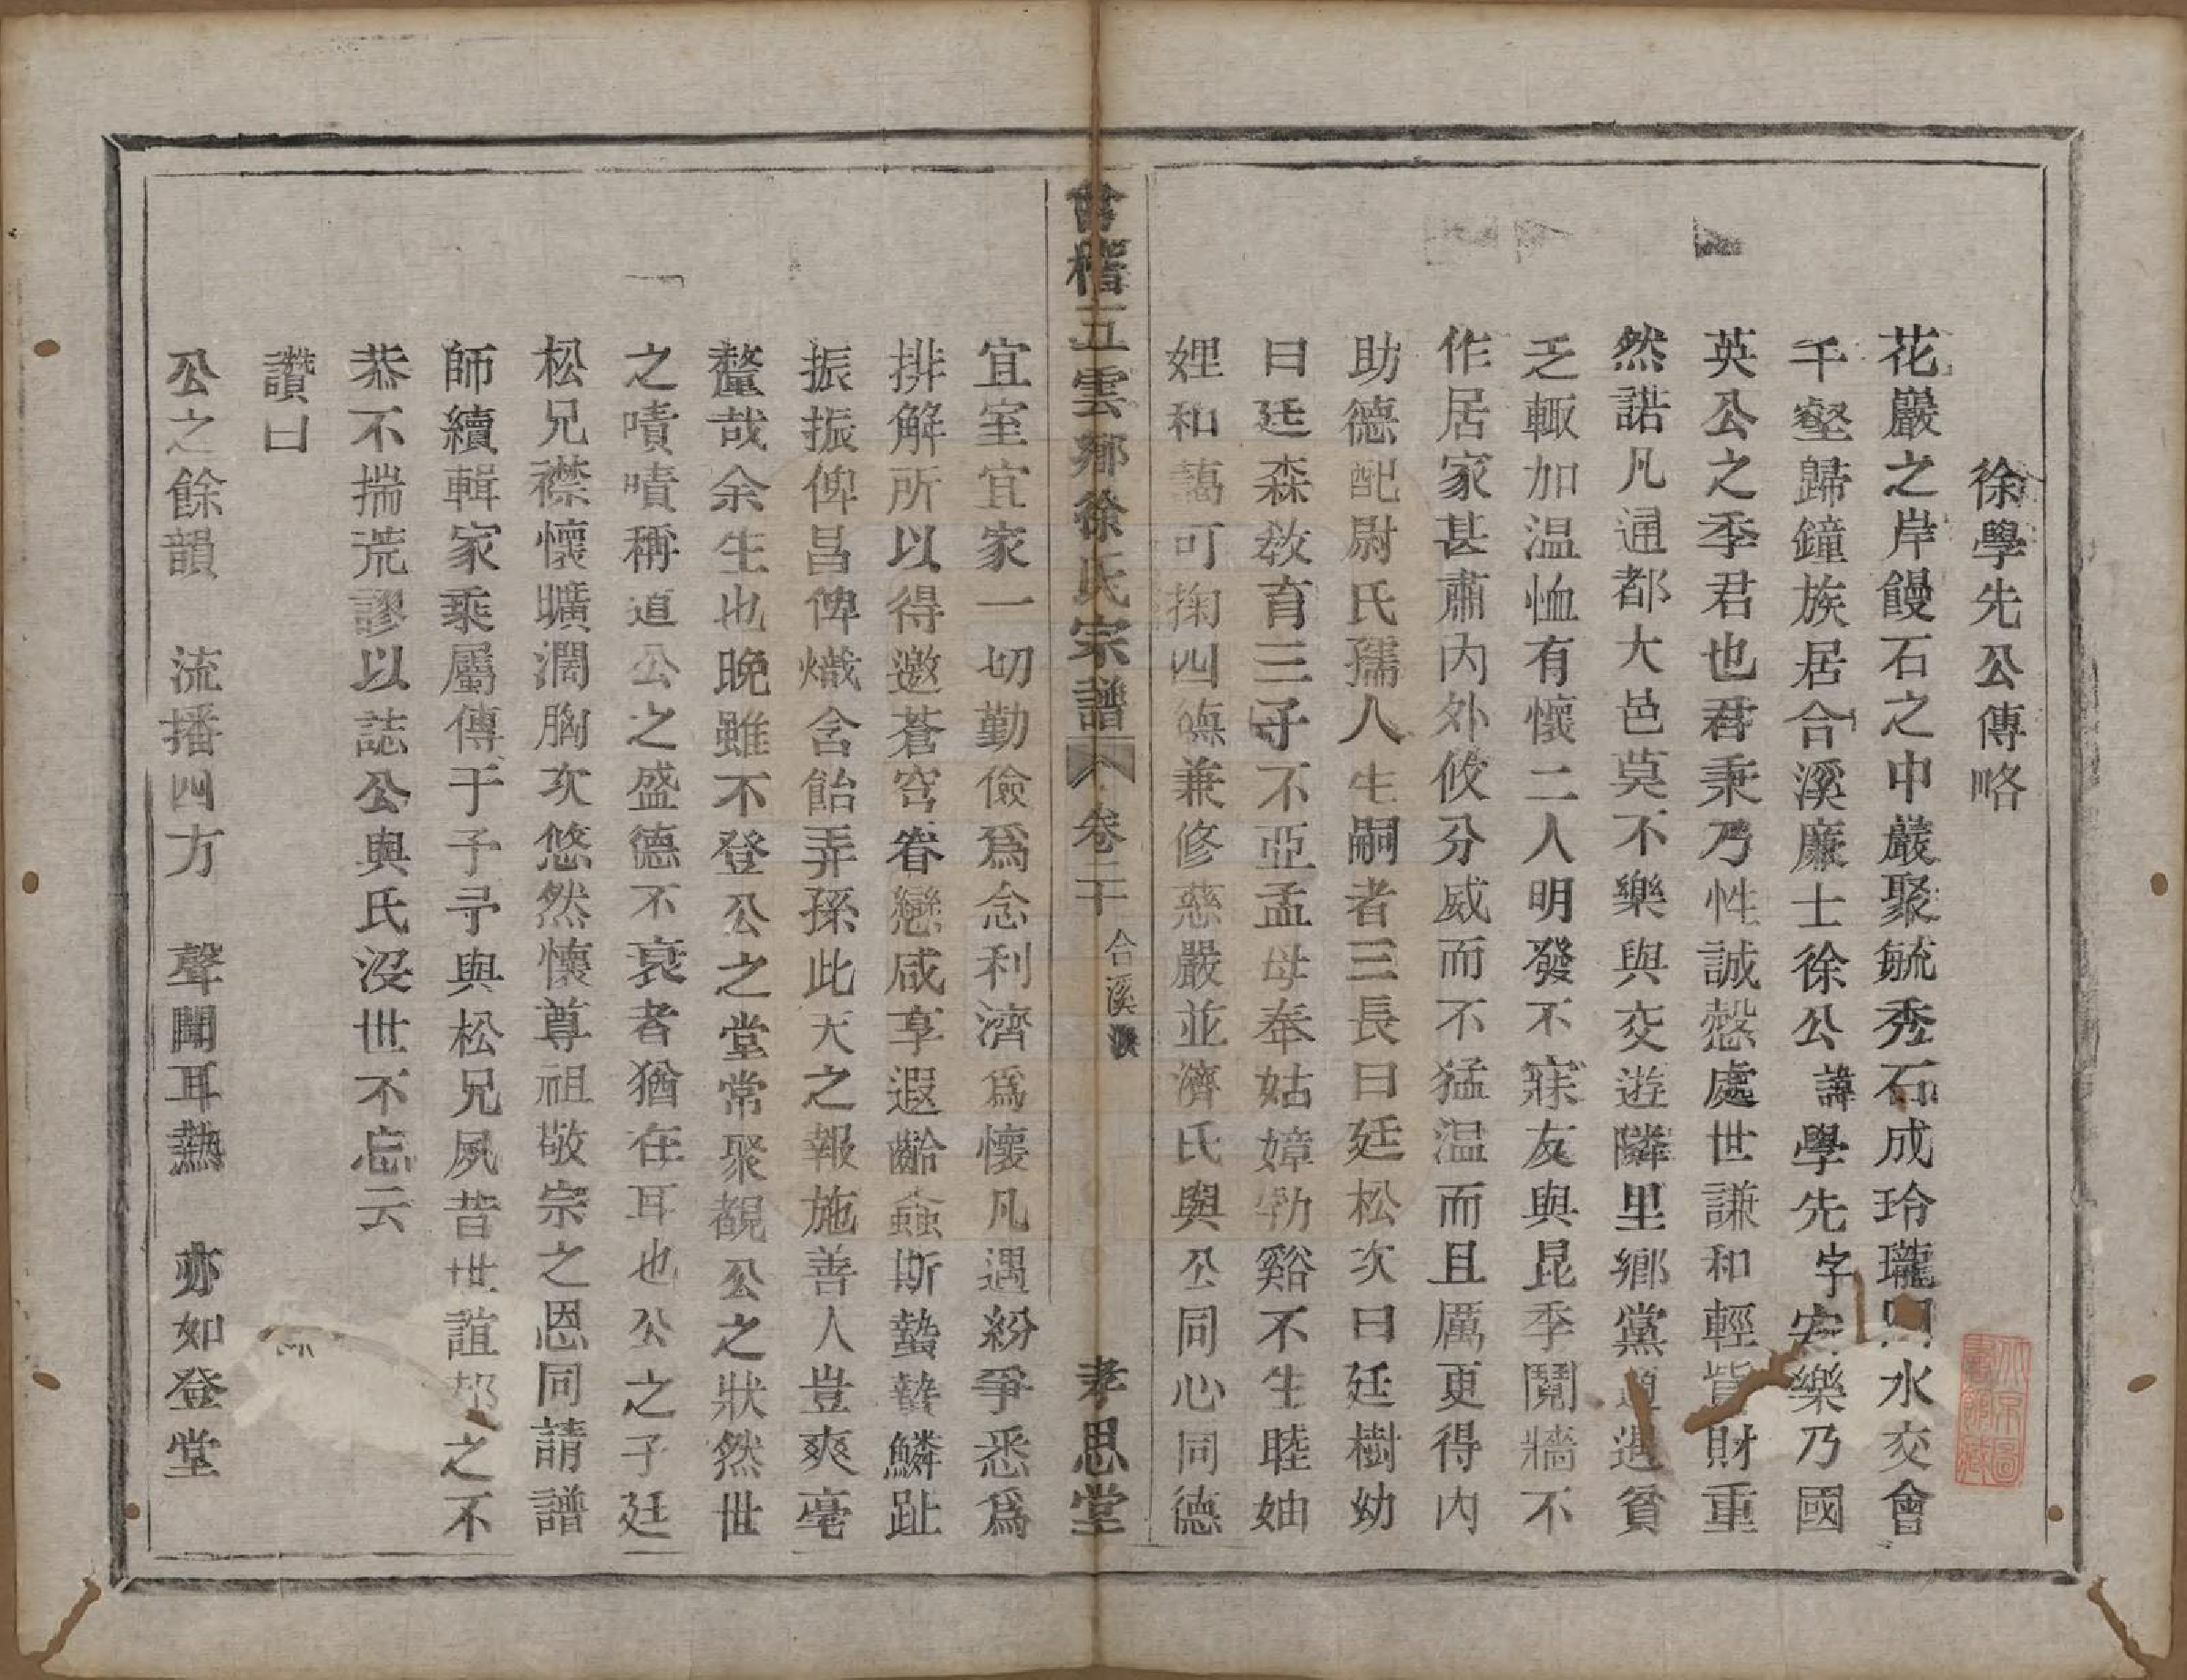 徐學先公傳略
花巖之岸饅石之中巖聚毓秀石成玲瓏水交會
千壑歸鐘族居合溪廉士徐公諱學先字宏樂乃國
英公之季君也君秉乃性誠慤處世謙和輕貲財重
然諾凡通都大邑莫不樂與交遊隣里鄉黨遇貧
乏輙加温恤有懷二人明發不寐友與昆季鬩牆不
作居家甚肅内外攸分威而不猛温而且厲更得内
助德配尉氏孺人生嗣者三長曰廷松次曰廷樹幼
曰廷森敎育三子不亞孟母奉姑嫜勃谿不生睦妯
娌和藹可掬四德兼修慈嚴並濟氏與公同心同德
會稽五雲鄉徐氏宗譜 卷二十 合溪派 孝思堂
宜室宜家一切勤儉爲念利濟爲懷凡遇紛爭悉爲
排解所以得邀蒼穹眷戀咸享遐齡螽斯蟄蟄鱗趾
振振俾昌俾熾含飴弄孫此天之報施善人豈爽毫
釐哉余生也晚雖不登公之堂常聚覩公之狀然世
之嘖嘖稱道公之盛德不衰者猶在耳也公之子廷
松兄襟懷曠濶胸次悠然懷尊祖敬宗之恩同請譜
師續輯家乘屬傳于予予與松兄夙昔世誼却之不
恭不揣荒謬以誌公與氏沒世不忘云
讚曰
公之餘韻 流播四方 聲聞耳熱 亦如登堂